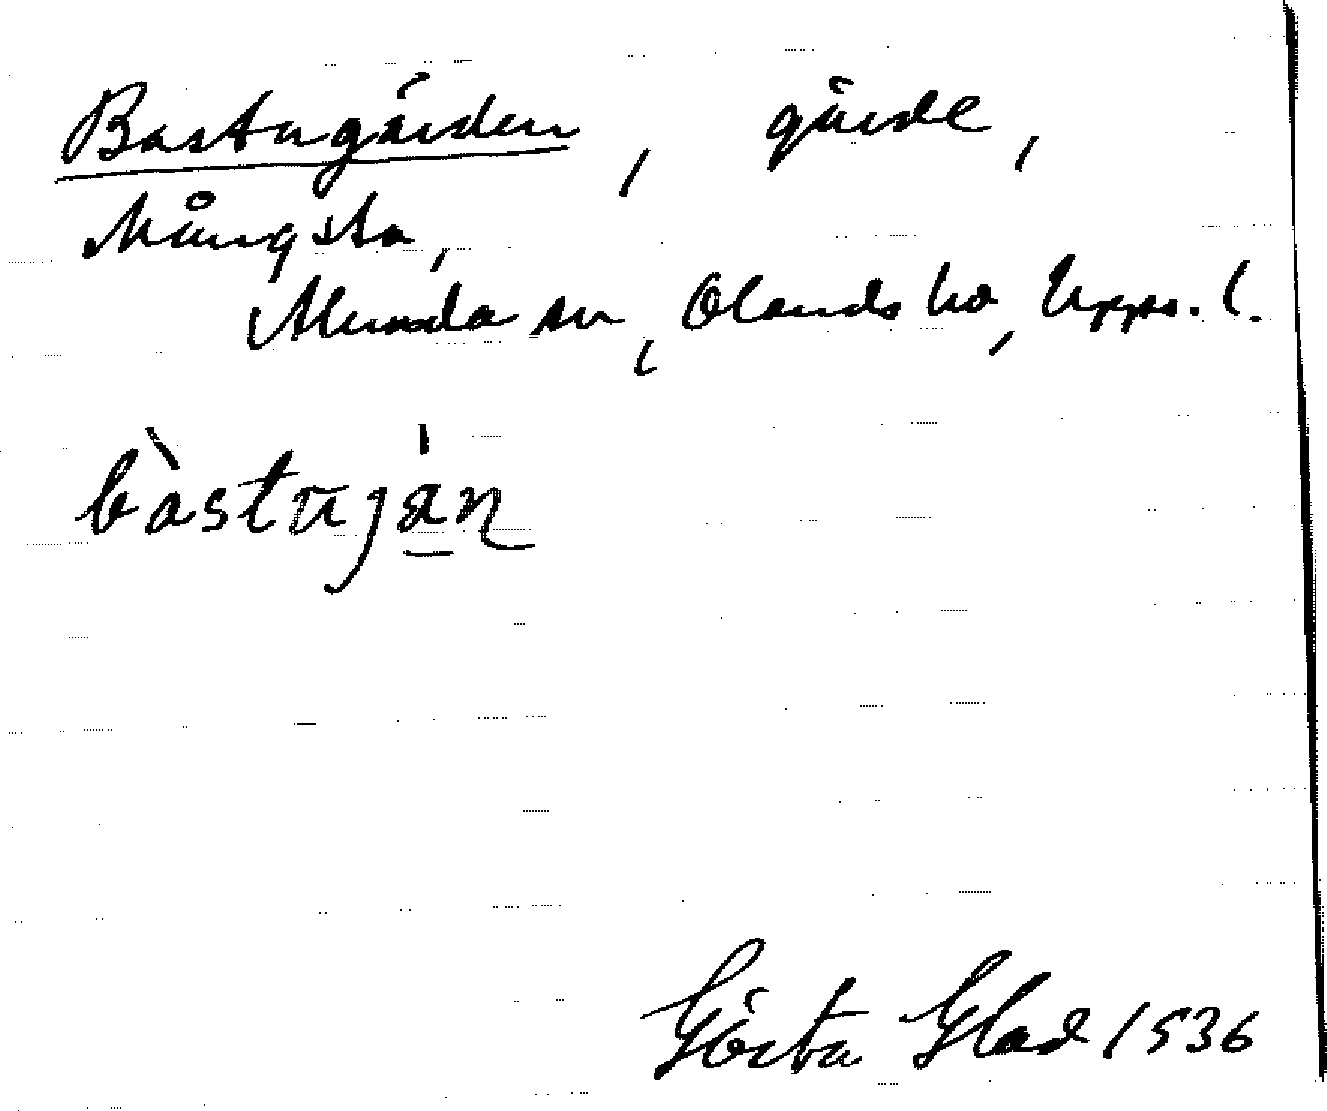 Bastugärden, gärde,
Mångsta,
Alunda sn, Olands hd, Upps. l.
bàstuján
Gösta Glad 1936